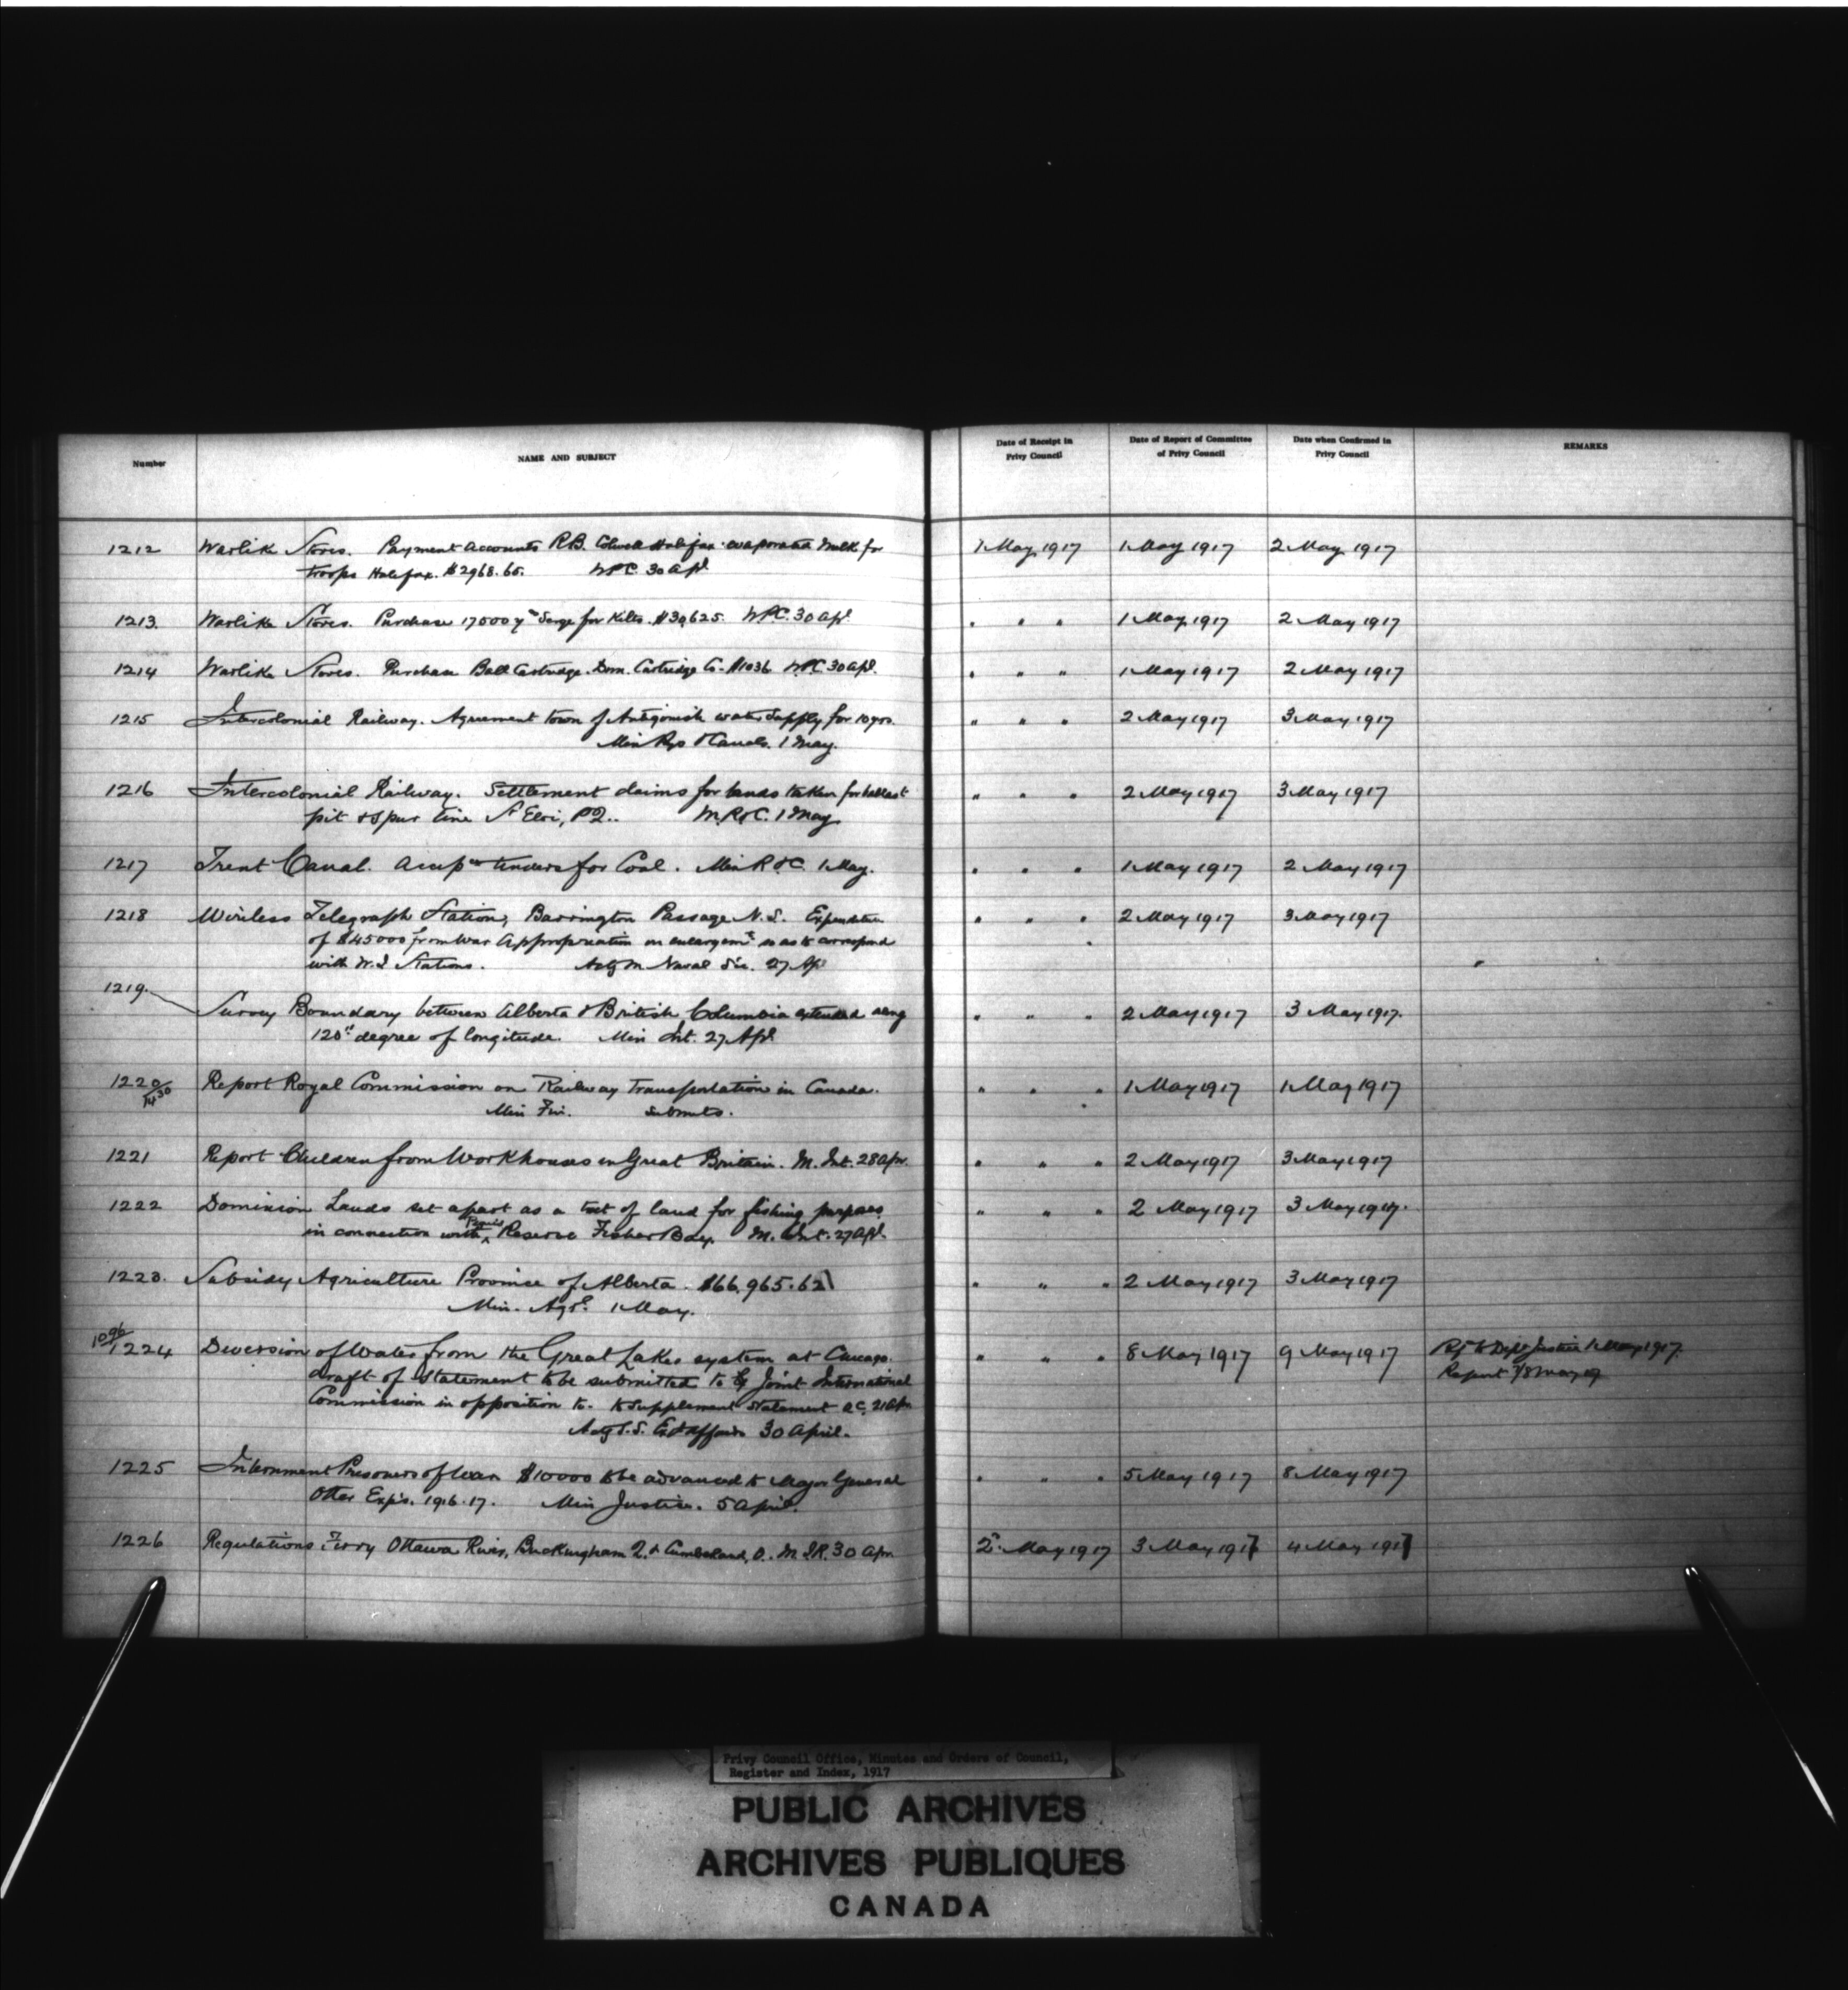 Number NAME AND SUBJECT Date of Receipt in Privy Council Date of Report of Committee of Privy Council Date when Confirmed in Privy Council REMARKS
1212 Warlike Stores. Payment accounts R.B. Colwell Halifax evaporated Milk for 1 May 1917 1 May 1917 2 May 1917
troops Halifax. $2968.65. W.P.C. 30 Apl
1213. Warlike Stores. Purchase 17500 yds Serge for Kilts. W.P.C. 30 Apl " " " 1 May 1917 2 May 1917
1214 Warlike Stores. Purchase Ball Cartridge. Dom. Cartridge Co. $1036 W.P.C. 30 Apl. " " " 1 May 1917 2 May 1917
1215 Intercolonial Railway. Agreement town of Antigonish water supply for 10 yrs. " " " 2 May 1917 3 May 1917
Min Rys & Canals. 1 May.
1216 Intercolonial Railway. Settlement claims for lands taken for ballast " " " 2 May 1917 3 May 1917
pit & spur line St Eloi, P.Q.. M.R.&C. 1 May
1217 Trent Canal. Accepce tenders for Coal. Min R & C. 1 May. " " " 1 May 1917 2 May 1917
1218 Wireless Telegraph Station, Barrington Passage N.S. Expenditure " " " 2 May 1917 3 May 1917
of $45000 from War Appropriation on enlargemt so as to correspond
with W.I. Stations. Actg M. Naval Sve. 27 Apl
1219. Survey Boundary between Alberta & British Columbia extended along " " " 2 May 1917 3 May 1917.
120th degree of longitude. Min Int. 27 Apl
1220/1430 Report Royal Commission on Railway Transportation in Canada. " " " 1 May 1917 1 May 1917
Min Fin. submits.
1221 Report Children from Workhouses in Great Britain. M. Int. 28 Apr. " " " 2 May 1917 3 May 1917
1222 Dominion Lands set apart as a tract of land for fishing purposes " " " 2 May 1917 3 May 1917.
in connection with Peguis Reserve Fisher Bay. M. Int. 27 Apl.
1223. Subsidy Agriculture Province of Alberta. $66,965.62 " " " 2 May 1917 3 May 1917
Min. Agre. 1 May.
1096/1224 Diversion of Water from the Great Lakes system at Chicago. " " " 8 May 1917 9 May 1917 Rf. to Dept Justice 1 May 1917.
draft of Statement to be submitted to Joint International Report 7/8 May 17
Commission in opposition to. to supplement statement P.C. 21 Apr
Actg S.S. Ext affairs 30 April.
1225 Internment Prisoners of War $10000 to be advanced to Major General " " " 5 May 1917 8 May 1917
Otter Exp's. 1916-17. Min Justice. 5 April.
1226 Regulations Ferry Ottawa River, Buckingham Q. & Cumberland, O. M I.R. 30 Apr 2 May 1917 3 May 1917 4 May 1917
Privy Council Office, Minutes and Orders of Council,
Register and Index, 1917
PUBLIC ARCHIVES
ARCHIVES PUBLIQUES
CANADA